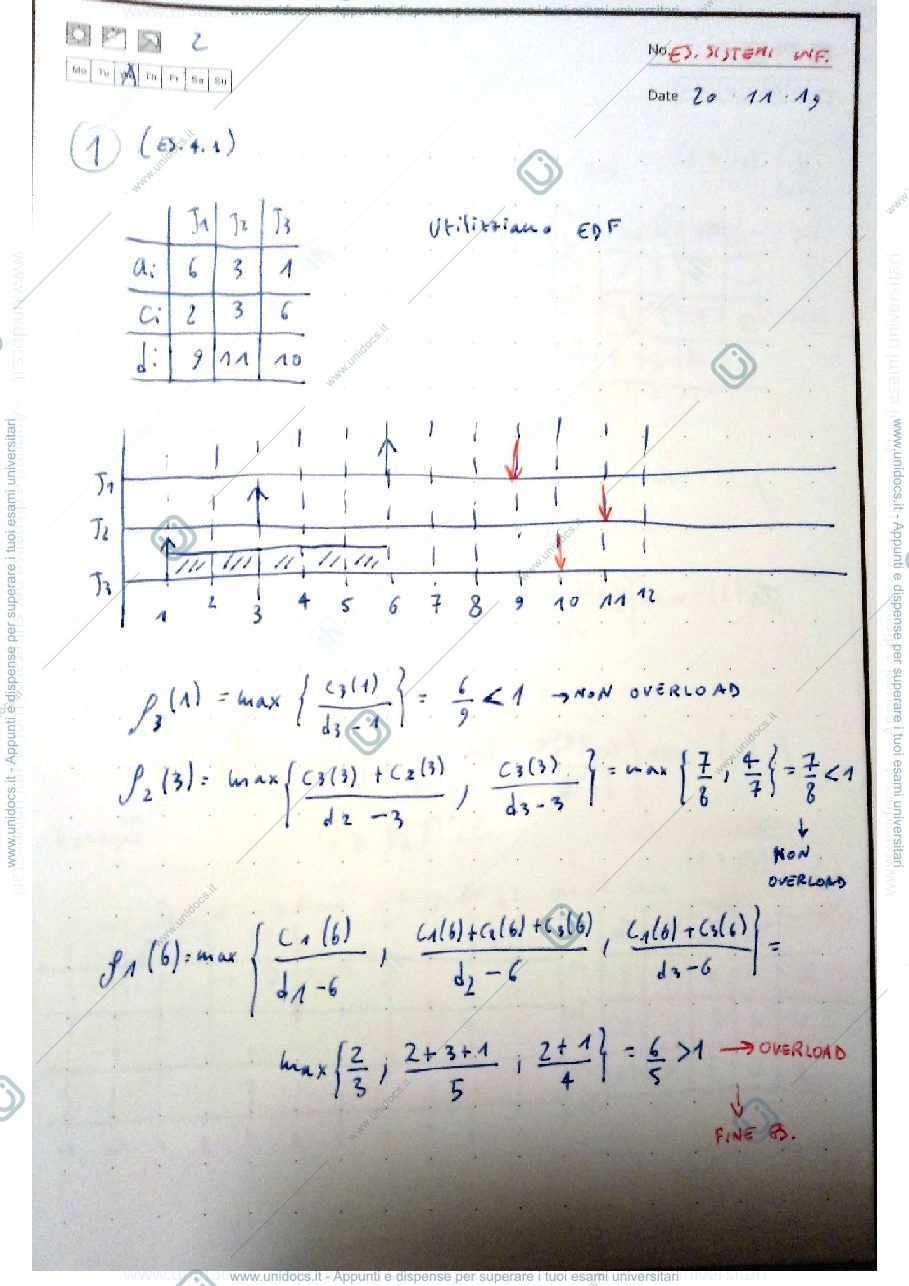 www.unidocs.it - Appunti e dispense per superare i tuoi esami universitari
2
No. ES. SISTEMI INF.
Mo Tu Th Fr Sa Su
Date 20 · 11 · 19
1 (ES. 4.1)
J1 J2 J3
Utilizziamo EDF
ai 6 3 1
ci 2 3 6
di 9 11 10
J1
J2
J3
1 2 3 4 5 6 7 8 9 10 11 12
ρ3(1) = max { c3(1) / d3-1 } = 6/9 < 1 → NON OVERLOAD
ρ2(3) = max { c3(3) + c2(3) / d2 - 3 , c3(3) / d3-3 } = max { 7/8 , 4/7 } = 7/8 < 1
↓
NON
OVERLOAD
ρ1(6) = max { c1(6) / d1-6 , c1(6)+c2(6)+c3(6) / d2-6 , c1(6)+c3(6) / d3-6 } =
max { 2/3 , 2+3+1 / 5 , 2+1 / 4 } = 6/5 > 1 → OVERLOAD
↓
FINE ES.
www.unidocs.it - Appunti e dispense per superare i tuoi esami universitari
www.unidocs.it - Appunti e dispense per superare i tuoi esami universitari
www.unidocs.it - Appunti e dispense per superare i tuoi esami universitari